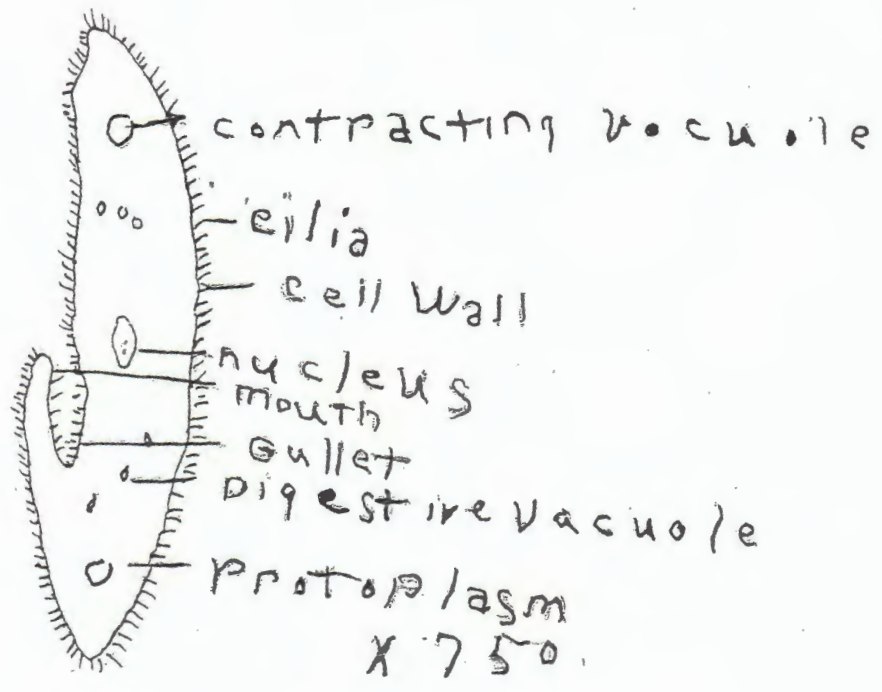 contracting vocuole
cilia
cell wall
nucleus
mouth
Gullet
Digestive vacuole
Protoplasm
X 750